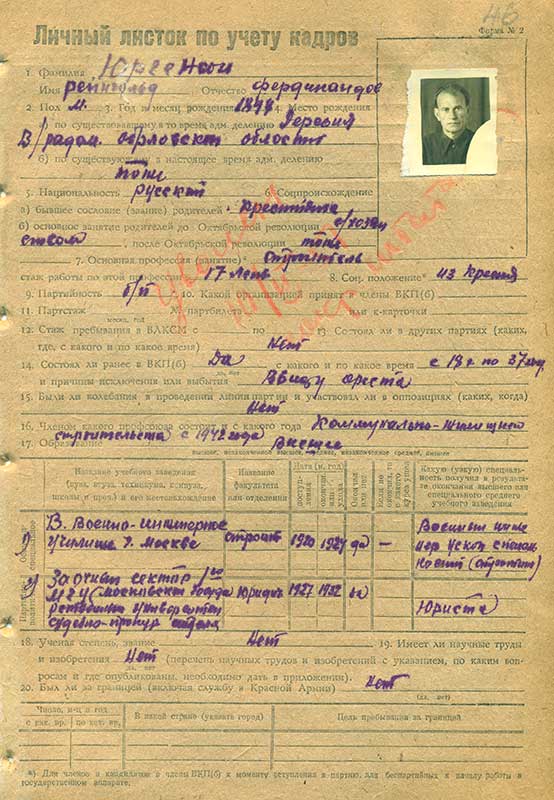 46
Форма № 2
Личный листок по учету кадров
1. Фамилия Юргенсон
Имя рейнгольд Отчество Фердинандов
2. Пол м. 3. Год и месяц рождения 4. Место рождения
а) по существовавшему в то время адм. делению Деревня
В/радом. Орловской области
б) по существующему в настоящее время адм. делению
тоже
5. Национальность русский 6. Соцпроисхождение
а) бывшее сословие (звание) родителей крестьяне
б) основное занятие родителей до Октябрьской революции с/хозяй
ством, после Октябрьской революции тоже
7. Основная профессия (занятие)* строитель
стаж работы по этой профессии 17 лет 8. Соц. положение* из крестья
9. Партийность б/п 10. Какой организацией принят в члены ВКП(б)
11. Партстаж № партбилета или к-карточки
месяц, год
12. Стаж пребывания в ВЛКСМ с по 13. Состоял ли в других партиях (каких,
где, с какого и по какое время) Нет
14. Состоял ли ранее в ВКП(б) Да с какого и по какое время с 18 г. по 37 год
да, нет
и причины исключения или выбытия Ввиду ареста
15. Были ли колебания в проведении линии партии и участвовал ли в оппозициях (каких, когда)
Нет
16. Членом какого профсоюза состоит и с какого года Коммунально-жилищного
строительства с 1942 года
17. Образование Высшее
высшее, незаконченное высшее, среднее, незаконченное среднее, низшее
Название учебного заведения (вуза, втуза, техникума, комвуза, школы и проч.) и его местонахождение
Название факультета или отделения
Дата (м. и год)
поступления
окончания или ухода
Окончил или нет
Если не окончил, то с какого курса ушел
Какую (узкую) специальность получил в результате окончания высшего или специального среднего учебного заведения
Общее и специальное
1) В. Военно-инженерное
училище г. Москве строит 1920 1924 да —
Военный инже
нер
(строитель)
Партийно-политич.
2) Заочный сектор 1го
МГУ (московский госуда
рственный университет
судебно-прокур. отдел
Юридич 1927 1932 да Юриста
18. Ученая степень, звание Нет 19. Имеет ли научные труды
и изобретения Нет (перечень научных трудов и изобретений с указанием, по каким воп-
росам и где опубликованы, необходимо дать в приложении).
20. Был ли за границей (включая службу в Красной Армии) Нет
(да, нет)
Число, м-ц и год
с как. вр. по как. вр.
В какой стране (указать город)
Цель пребывания за границей
*) Для членов и кандидатов в члены ВКП(б) к моменту вступления в партию, для беспартийных к началу работы в
государственном аппарате.